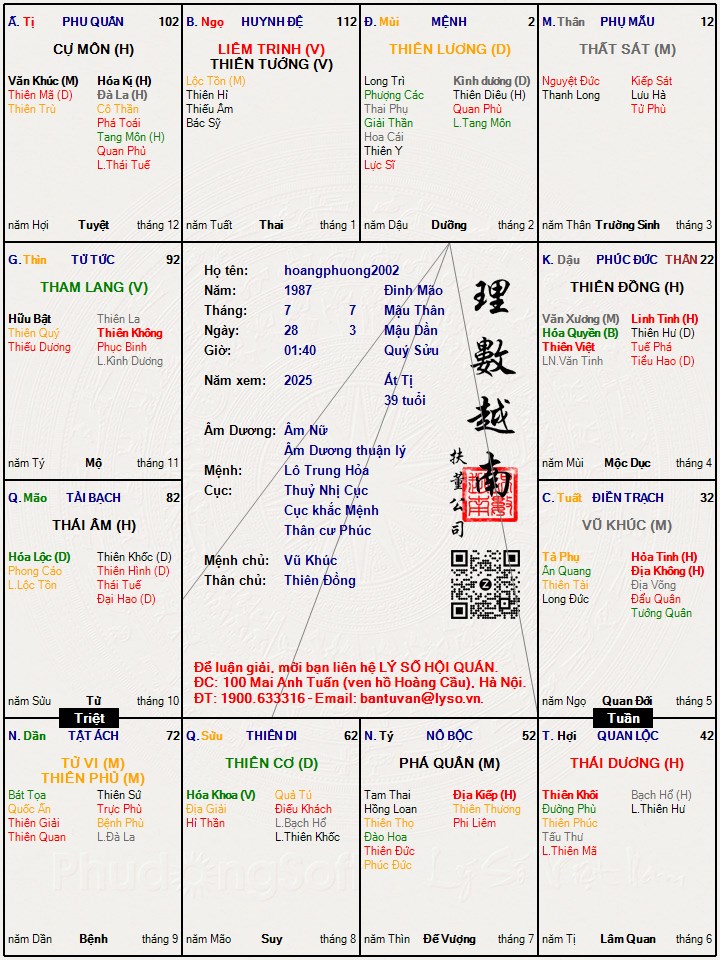 Ấ. Tị PHU QUÂN 102
CỰ MÔN (H)
Văn Khúc (M) Hóa Kị (H)
Thiên Mã (D) Đà La (H)
Thiên Trù Cô Thần
Phá Toái
Tang Môn (H)
Quan Phủ
L.Thái Tuế
năm Hợi Tuyệt tháng 12
B. Ngọ HUYNH ĐỆ 112
LIÊM TRINH (V)
THIÊN TƯỚNG (V)
Lộc Tồn (M)
Thiên Hỉ
Thiếu Âm
Bác Sỹ
năm Tuất Thai tháng 1
Đ. Mùi MỆNH 2
THIÊN LƯƠNG (D)
Long Trì Kình dương (D)
Phượng Các Thiên Diêu (H)
Thai Phụ Quan Phù
Giải Thần L.Tang Môn
Hoa Cái
Thiên Y
Lực Sĩ
năm Dậu Dưỡng tháng 2
M. Thân PHỤ MẪU 12
THẤT SÁT (M)
Nguyệt Đức Kiếp Sát
Thanh Long Lưu Hà
Tử Phù
năm Thân Trường Sinh tháng 3
G. Thìn TỬ TỨC 92
THAM LANG (V)
Hữu Bật Thiên La
Thiên Quý Thiên Không
Thiếu Dương Phục Binh
L.Kình Dương
năm Tý Mộ tháng 11
Họ tên: hoangphuong2002
Năm: 1987 Đinh Mão
Tháng: 7 7 Mậu Thân
Ngày: 28 3 Mậu Dần
Giờ: 01:40 Quý Sửu
Năm xem: 2025 Ất Tị
39 tuổi
Âm Dương: Âm Nữ
Âm Dương thuận lý
Mệnh: Lô Trung Hỏa
Cục: Thuỷ Nhị Cục
Cục khắc Mệnh
Thân cư Phúc
Mệnh chủ: Vũ Khúc
Thân chủ: Thiên Đồng
理數越南
扶董公司
Để luận giải, mời bạn liên hệ LÝ SỐ HỘI QUÁN.
ĐC: 100 Mai Anh Tuấn (ven hồ Hoàng Cầu), Hà Nội.
ĐT: 1900.633316 - Email: bantuvan@lyso.vn.
K. Dậu PHÚC ĐỨC THÂN 22
THIÊN ĐỒNG (H)
Văn Xương (M) Linh Tinh (H)
Hóa Quyền (B) Thiên Hư (D)
Thiên Việt Tuế Phá
LN.Văn Tinh Tiểu Hao (D)
năm Mùi Mộc Dục tháng 4
Q. Mão TÀI BẠCH 82
THÁI ÂM (H)
Hóa Lộc (D) Thiên Khốc (D)
Phong Cáo Thiên Hình (D)
L.Lộc Tồn Thái Tuế
Đại Hao (D)
năm Sửu Tử tháng 10
C. Tuất ĐIỀN TRẠCH 32
VŨ KHÚC (M)
Tả Phụ Hỏa Tinh (H)
Ân Quang Địa Không (H)
Thiên Tài Địa Võng
Long Đức Đẩu Quân
Tướng Quân
năm Ngọ Quan Đới tháng 5
Triệt
Tuần
N. Dần TẬT ÁCH 72
TỬ VI (M)
THIÊN PHỦ (M)
Bát Tọa Thiên Sứ
Quốc Ấn Trực Phù
Thiên Giải Bệnh Phù
Thiên Quan L.Đà La
năm Dần Bệnh tháng 9
Q. Sửu THIÊN DI 62
THIÊN CƠ (D)
Hóa Khoa (V) Quả Tú
Địa Giải Điếu Khách
Hỉ Thần L.Bạch Hổ
L.Thiên Khốc
năm Mão Suy tháng 8
N. Tý NÔ BỘC 52
PHÁ QUÂN (M)
Tam Thai Địa Kiếp (H)
Hồng Loan Thiên Thương
Thiên Thọ Phi Liêm
Đào Hoa
Thiên Đức
Phúc Đức
năm Thìn Đế Vượng tháng 7
T. Hợi QUAN LỘC 42
THÁI DƯƠNG (H)
Thiên Khôi Bạch Hổ (H)
Đường Phù L.Thiên Hư
Thiên Phúc
Tấu Thư
L.Thiên Mã
năm Tị Lâm Quan tháng 6
Phudongsoft Lý Số Việt Nam